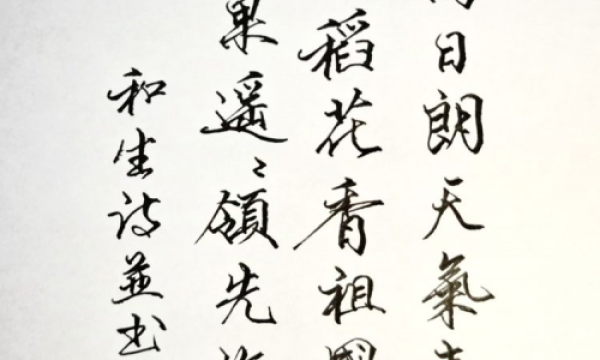 日朗天氣
稻花香祖國
果遥〻領先
和生詩並书